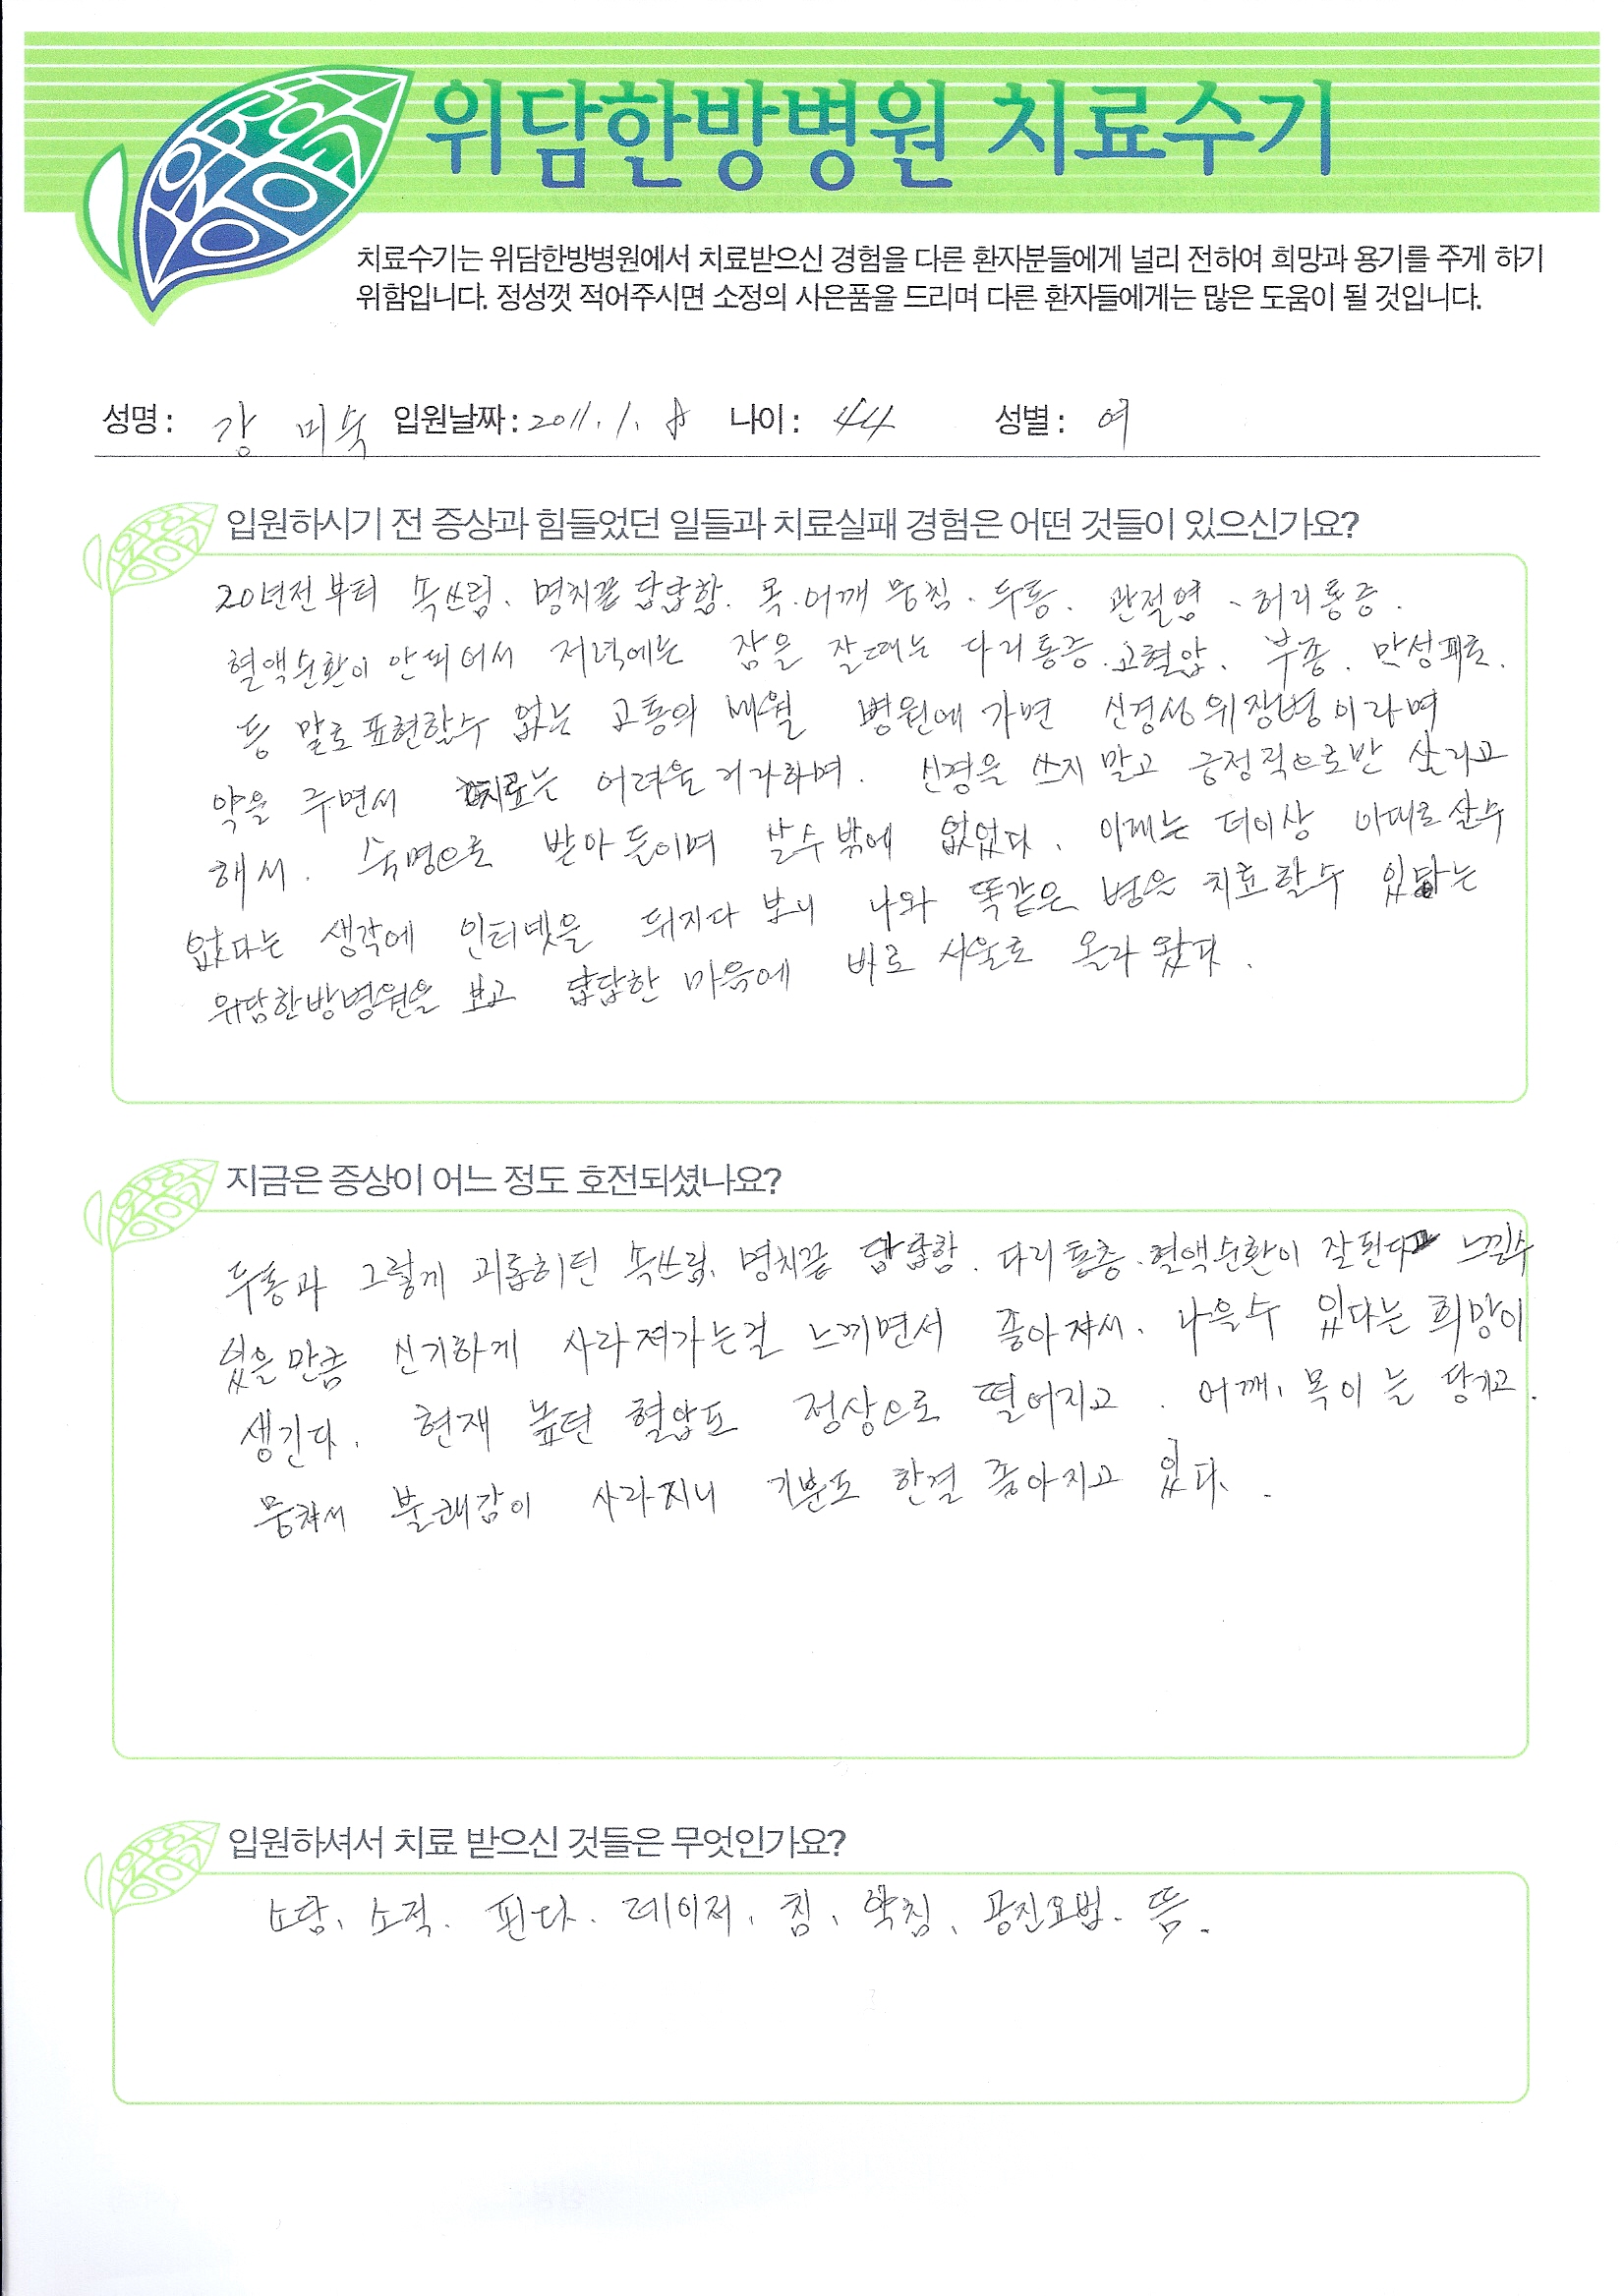 위담한방병원 치료수기
치료수기는 위담한방병원에서 치료받으신 경험을 다른 환자분들에게 널리 전하여 희망과 용기를 주게 하기
위함입니다. 정성껏 적어주시면 소정의 사은품을 드리며 다른 환자들에게는 많은 도움이 될 것입니다.
성명 : 강 미숙 입원날짜 : 2011. 1. 8 나이 : 44 성별 : 여
입원하시기 전 증상과 힘들었던 일들과 치료실패 경험은 어떤 것들이 있으신가요?
20년전부터 속쓰림. 명치끝 답답함. 목.어깨 뭉침. 두통. 관절염. 허리통증.
혈액순환이 안되어서 저녁에는 잠을 잘때는 다리통증.고혈압. 부종. 만성피로.
등 말로 표현할수 없는 고통의 세월 병원에 가면 신경성위장병이라며
약을 주면서 치료는 어려울 거라하며. 신경을 쓰지 말고 긍정적으로만 살라고
해서. 숙명으로 받아들이며 살수밖에 없었다. 이제는 더이상 이대로살수
없다는 생각에 인터넷을 뒤지다 보니 나와 똑같은 병을 치료할수 있다는
위담한방병원을 보고 답답한 마음에 바로 서울로 올라왔다.
지금은 증상이 어느 정도 호전되셨나요?
두통과 그렇게 괴롭히던 속쓰림, 명치끝 답답함. 다리통증.혈액순환이 잘된다 느낄수
있을만큼 신기하게 사라져가는걸 느끼면서 좋아져서. 나을수 있다는 희망이
생긴다. 현재 높던 혈압도 정상으로 떨어지고. 어깨, 목이 늘 당기고.
뭉쳐서 불쾌감이 사라지니 기분도 한결 좋아지고 있다.
입원하셔서 치료 받으신 것들은 무엇인가요?
소담, 소적. 핀다. 레이저, 침, 약침, 광진요법. 뜸.